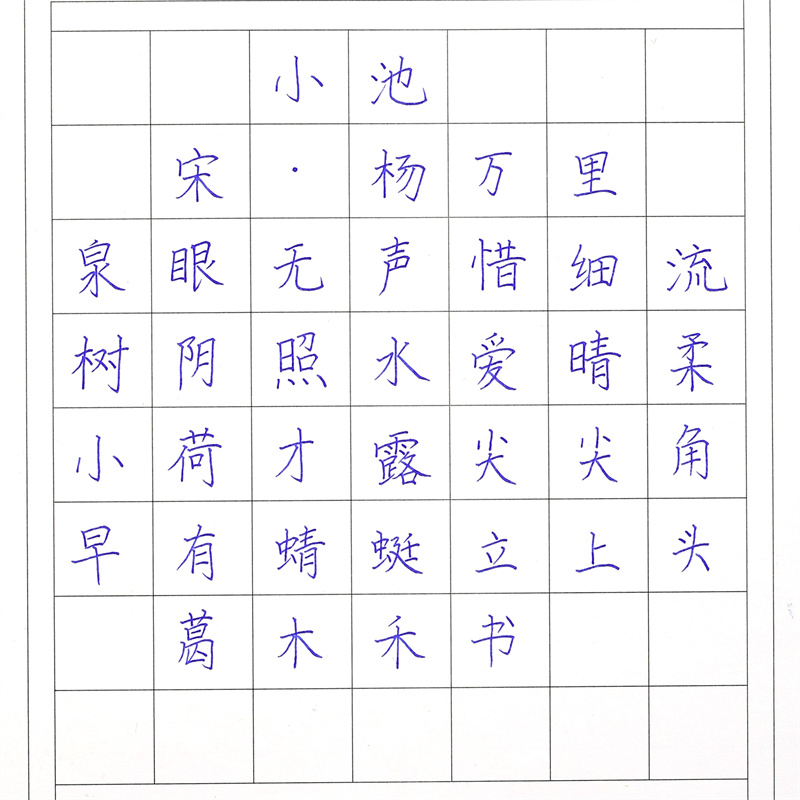 小池
宋·杨万里
泉眼无声惜细流
树阴照水爱晴柔
小荷才露尖尖角
早有蜻蜓立上头
葛木禾书